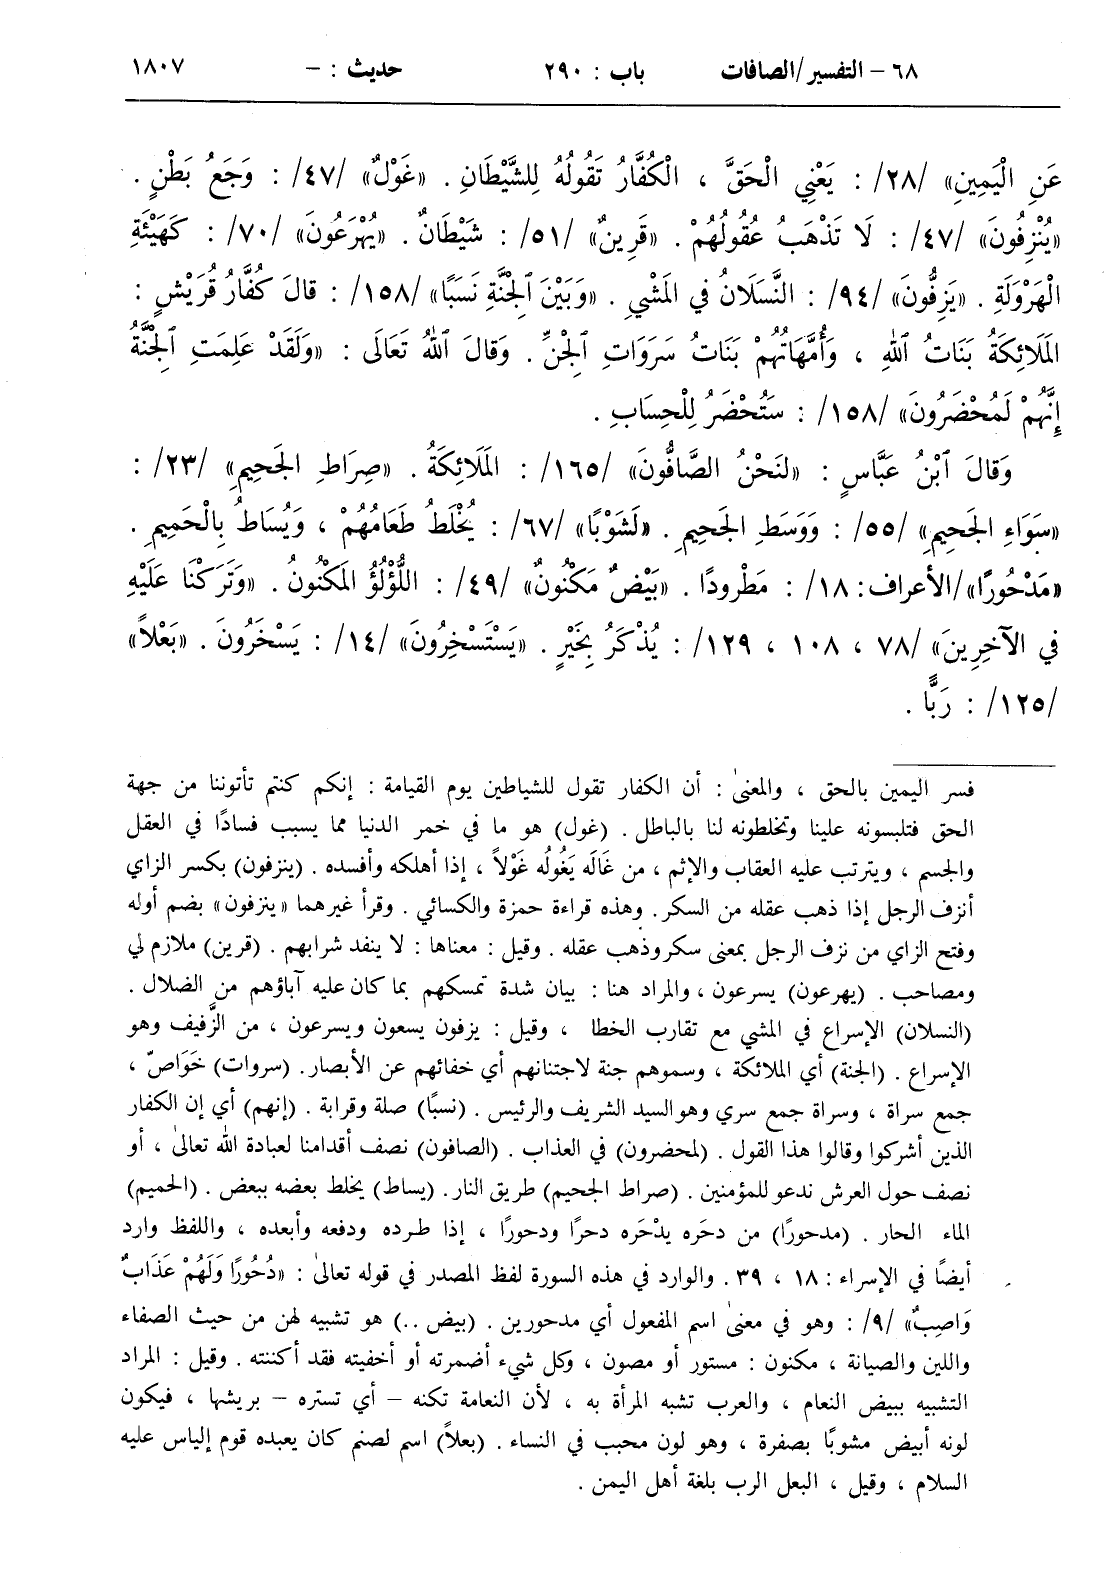 ٦٨ – التفسير/الصافات باب : ٢٩٠ حديث : – ١٨٠٧
عَنِ الْيَمِينِ» /٢٨/ : يَعْنِي الْحَقَّ ، الْكُفَّارُ تَقُولُهُ لِلشَّيْطَانِ . «غَوْلٌ» /٤٧/ : وَجَعُ بَطْنٍ .
«يُنْزِفُونَ» /٤٧/ : لَا تَذْهَبُ عُقُولُهُمْ . «قَرِينٌ» /٥١/ : شَيْطَانٌ . «يُهْرَعُونَ» /٧٠/ : كَهَيْئَةِ
الْهَرْوَلَةِ . «يَزِفُّونَ» /٩٤/ : النَّسَلَانُ فِي المَشْيِ . «وَبَيْنَ ٱلْجِنَّةِ نَسَبًا» /١٥٨/ : قالَ كُفَّارُ قُرَيْشٍ :
المَلَائِكَةُ بَنَاتُ ٱللهِ ، وَأُمَّهَاتُهُمْ بَنَاتُ سَرَوَاتِ ٱلْجِنِّ . وَقالَ ٱللهُ تَعَالَى : «وَلَقَدْ عَلِمَتِ ٱلْجِنَّةُ
إِنَّهُمْ لَمُحْضَرُونَ» /١٥٨/ : سَتُحْضَرُ لِلْحِسَابِ .
وَقالَ ٱبْنُ عَبَّاسٍ : «لَنَحْنُ الصَّافُّونَ» /١٦٥/ : المَلَائِكَةُ . «صِرَاطِ الجَحِيمِ» /٢٣/ :
«سَوَاءِ الجَحِيمِ» /٥٥/ : وَوَسَطِ الجَحِيمِ . «لَشَوْبًا» /٦٧/ : يُخْلَطُ طَعَامُهُمْ ، وَيُسَاطُ بِالْحَمِيمِ .
«مَدْحُورًا»/الأعراف: ١٨/ : مَطْرُودًا . «بَيْضٌ مَكْنُونٌ» /٤٩/ : اللُّؤْلُؤُ المَكْنُونُ . «وَتَرَكْنَا عَلَيْهِ
فِي الآخِرِينَ» /٧٨ ، ١٠٨ ، ١٢٩/ : يُذْكَرُ بِخَيْرٍ . «يَسْتَسْخِرُونَ» /١٤/ : يَسْخَرُونَ . «بَعْلاً»
/١٢٥/ : رَبًّا .
فسر اليمين بالحق ، والمعنىٰ : أن الكفار تقول للشياطين يوم القيامة : إنكم كنتم تأتوننا من جهة
الحق فتلبسونه علينا وتخلطونه لنا بالباطل . (غول) هو ما في خمر الدنيا مما يسبب فسادًا في العقل
والجسم ، ويترتب عليه العقاب والإثم ، من غَالَه يَغُولُه غَوْلاً ، إذا أهلكه وأفسده . (ينزفون) بكسر الزاي
أنزف الرجل إذا ذهب عقله من السكر. وهذه قراءة حمزة والكسائي . وقرأ غيرهما «ينزفون» بضم أوله
وفتح الزاي من نزف الرجل بمعنى سكر وذهب عقله . وقيل : معناها : لا ينفد شرابهم . (قرين) ملازم لي
ومصاحب . (يهرعون) يسرعون ، والمراد هنا : بيان شدة تمسكهم بما كان عليه آباؤهم من الضلال .
(النسلان) الإسراع في المشي مع تقارب الخطا ، وقيل : يزفون يسعون ويسرعون ، من الزَّفيف وهو
الإسراع . (الجنة) أي الملائكة ، وسموهم جنة لاجتنانهم أي خفائهم عن الأبصار. (سروات) خَوَاصّ ،
جمع سراة ، وسراة جمع سري وهو السيد الشريف والرئيس . (نسبًا) صلة وقرابة . (إنهم) أي إن الكفار
الذين أشركوا وقالوا هذا القول . (لمحضرون) في العذاب . (الصافون) نصف أقدامنا لعبادة الله تعالىٰ ، أو
نصف حول العرش ندعو للمؤمنين . (صراط الجحيم) طريق النار. (يساط) يخلط بعضه ببعض . (الحميم)
الماء الحار . (مدحورًا) من دحَره يدْحَره دحرًا ودحورًا ، إذا طرده ودفعه وأبعده ، واللفظ وارد
أيضًا في الإسراء : ١٨ ، ٣٩. والوارد في هذه السورة لفظ المصدر في قوله تعالىٰ : «دُحُورًا وَلَهُمْ عَذَابٌ
وَاصِبٌ» /٩/ : وهو في معنىٰ اسم المفعول أي مدحورين . (بيض ..) هو تشبيه لهن من حيث الصفاء
واللين والصيانة ، مكنون : مستور أو مصون ، وكل شيء أضمرته أو أخفيته فقد أكننته . وقيل : المراد
التشبيه ببيض النعام ، والعرب تشبه المرأة به ، لأن النعامة تكنه – أي تستره – بريشها ، فيكون
لونه أبيض مشوبًا بصفرة ، وهو لون محبب في النساء . (بعلاً) اسم لصنم كان يعبده قوم إلياس عليه
السلام ، وقيل ، البعل الرب بلغة أهل اليمن .